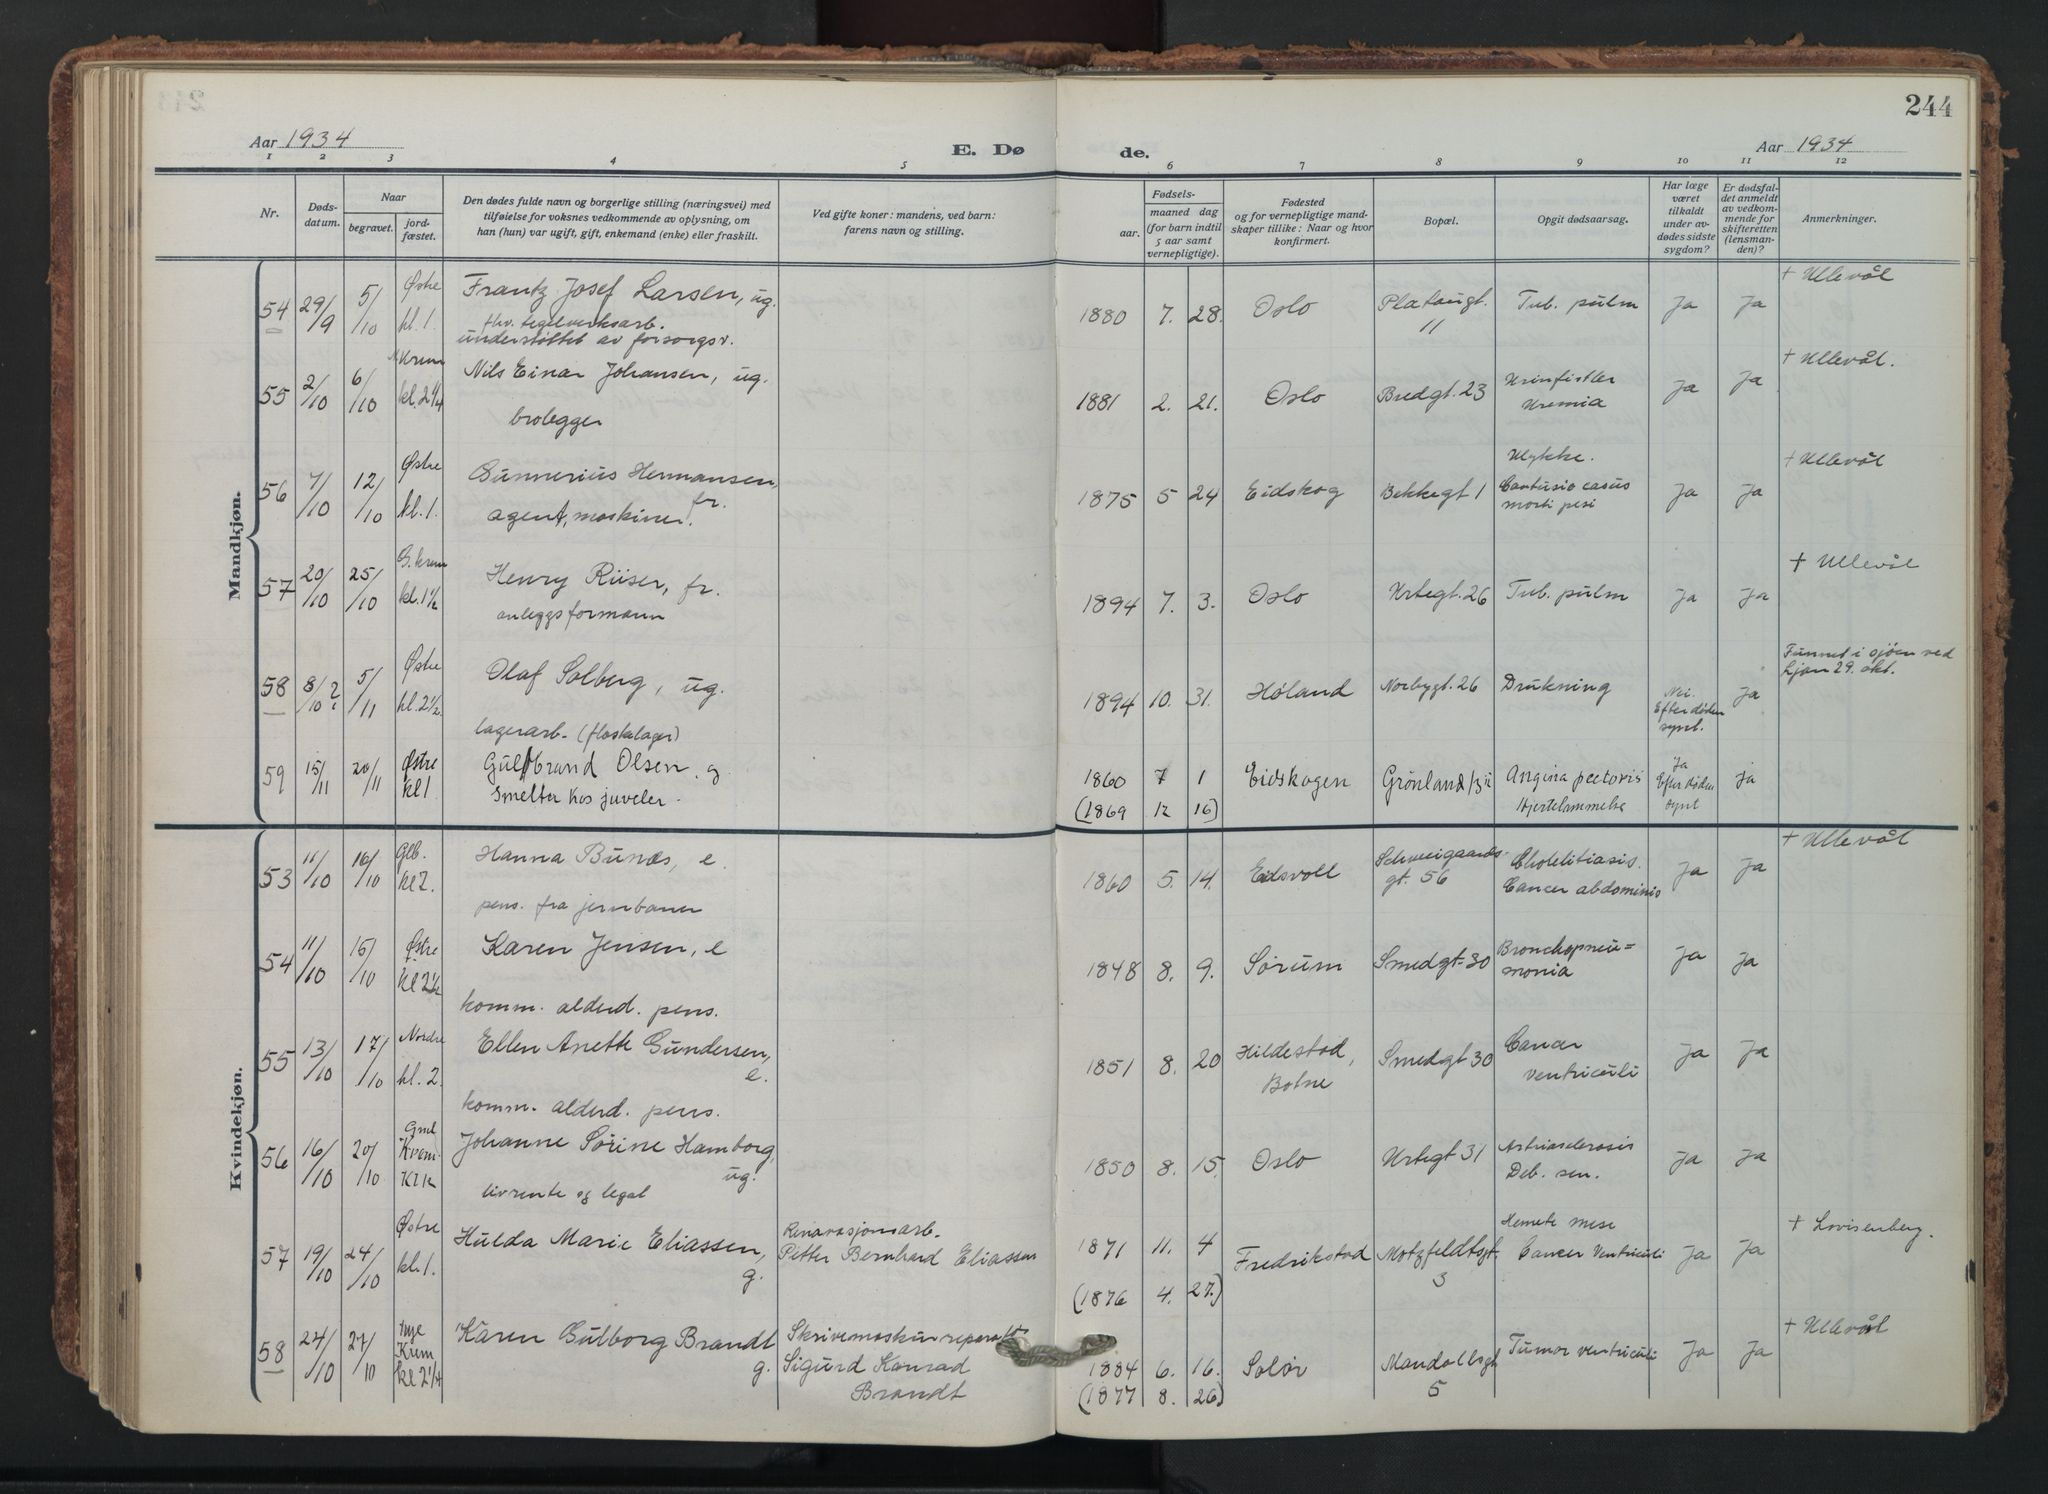 244
Aar 1934
E. Dø de.
Aar 1934
1 2 3 4 5 6 7 8 9 10 11 12
Nr.
Døds-
datum.
Naar
begravet.
jord-
fæstet.
Den dødes fulde navn og borgerlige stilling (næringsvei) med
tilføielse for voksnes vedkommende av oplysning, om
han (hun) var ugift, gift, enkemand (enke) eller fraskilt.
Ved gifte koner: mandens, ved barn:
farens navn og stilling.
Fødsels-
aar.
maaned dag
(for barn indtil
5 aar samt
vernepligtige).
Fødested
og for vernepligtige mand-
skaper tillike: Naar og hvor
konfirmert.
Bopæl.
Opgit dødsaarsag.
Har læge
været
tilkaldt
under av-
dødes sidste
sygdom?
Er dødsfal-
det anmeldt
av vedkom-
mende for
skifteretten
(lensman-
den)?
Anmerkninger.
Mandkjøn.
54 29/9 5/10 Østre kl. 1. Frantz Josef Larsen, ug. 1880 7. 28. Oslo Plataugt. 11 Tub. pulm Ja Ja + Ullevål
fhv. teglverksarb.
understøttet av forsorgsv.
55 2/10 6/10 N. Krem kl. 2 1/4 Nils Einar Johansen, ug. 1881 2. 21. Oslo Bredgt. 23 Urinfistler Uremia Ja Ja + Ullevål.
brolegger
56 7/10 12/10 Østre kl. 1. Gunnerius Hermansen, fr. 1875 5 24 Eidskog Bekkegt 1 Ulykke. Contusio casus morti pesi Ja Ja + Ullevål
agent, maskiner.
57 20/10 25/10 G. krem kl. 1 1/2 Henry Riiser, fr. 1894 7. 3. Oslo Urtegt. 26 Tub. pulm Ja Ja + Ullevål
anleggsformann
58 8/10 ? 5/11 Østre kl. 2 1/2. Olaf Solberg, ug. 1894 10. 31. Høland Norbygt. 26 Drukning Nei. Efter døden synt. Ja Funnet i sjøen ved Ljan 29. okt.
lagerarb. (flaskelager)
59 15/11 20/11 Østre kl 1 Gulbrand Olsen. g 1860 7 1 Eidskogen Grønland Angina pectoris Hjertelammelse Ja Efter døden synt ja
Smelter hos juveler.
(1869 12 16)
Kvindekjøn.
53 11/10 16/10 Glb. kl 2. Hanna Bunæs, e. 1860 5. 14. Eidsvoll Schweigaards- gt. 56 Cholelitiasis. Cancer abdominis Ja Ja + Ullevål
pens. fra jernbanen
54 11/10 15/10 Østre kl 2 1/2 Karen Jensen, e 1848 8. 9. Sørum Smedgt. 30 Bronchopneu= monia Ja Ja
komm. alderd. pens.
55 13/10 17/10 Nordre kl. 2. Ellen Anette Gundersen, e. 1851 8. 20 Hildestad, Botne Smedgt 30 Cancer ventriculi Ja Ja
komm. alderd. pens.
56 16/10 20/10 Gml Krem. Johanne Sørine Hamborg, ug. 1850 8. 15. Oslo Urtegt 31 Artriosclerosis Deb. sen. Ja Ja
livrente og legat
57 19/10 24/10 Østre kl. 1. Hulda Marie Eliassen, g. Renovasjonsarb. Petter Bernhard Eliassen 1871 11. 4 Fredrikstad Motzfeldtsgt. 3 Cancer Ventriculi Ja Ja + Lovisenberg.
(1876 4. 27.)
58 24/10 27/10 nye Krem kl 2 1/4 Karen Gulborg Brandt g. Skrivemaskinreparatør Sigurd Konrad Brandt 1884 6. 16. Solør Mandallsgt 5 Tumor ventriculi Ja Ja + Ullevål
(1877 8. 26)